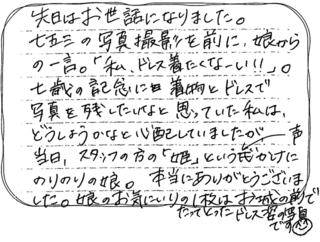 先日はお世話になりました。
七五三の写真撮影を前に、娘から
の一言。「私、ドレス着たくなーい!!」。
七歳の記念に日着物とドレスで
写真を残したいなと思っていた私は、
どうしようかなと心配していましたが
当日、スタッフの方の「姫」という声かけに
のりのりの娘。本当にありがとうございま
した。娘のお気にいりの1枚はお城の前で
たってとったドレス姿の写真
です